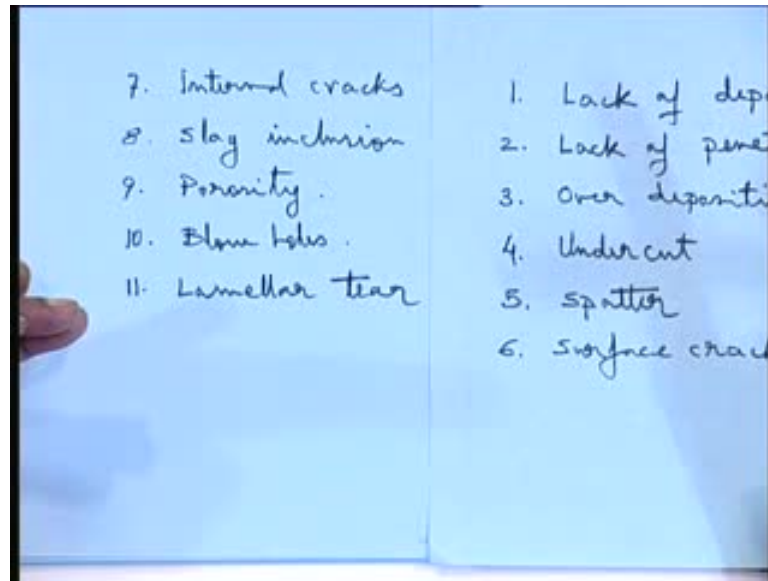 7. Internal cracks
8. Slag inclusion
9. Porosity.
10. Blow holes.
11. Lamellar tear
1. Lack of depo
2. Lack of penet
3. Over depositi
4. Undercut
5. Spatter
6. Surface crack